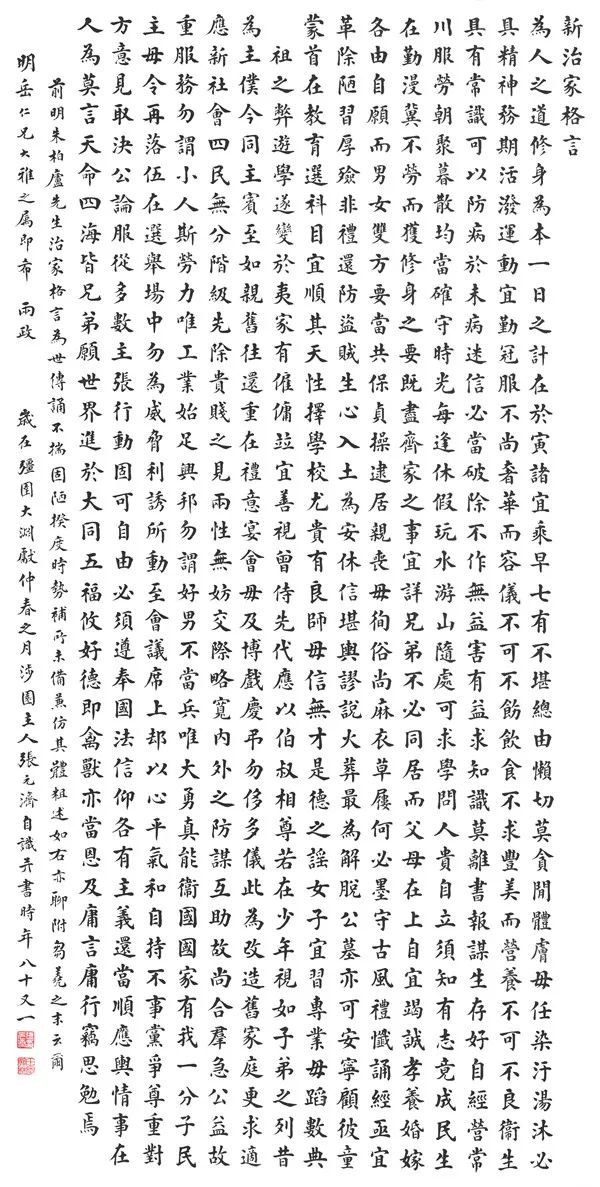 新治家格言
為人之道修身為本一日之計在於寅諸宜乘早七有不堪總由懶切莫貪閒體膚毋任染汙湯沐必
具精神務期活潑運動宜勤冠服不尚奢華而容儀不可不飭飲食不求豐美而營養不可不良衛生
具有常識可以防病於未病迷信必當破除不作無益害有益求知識莫離書報謀生存好自經營常
川服勞朝聚暮散均當確守時光每逢休假玩水游山隨處可求學問人貴自立須知有志竟成民生
在勤漫冀不勞而獲修身之要既盡齊家之事宜詳兄弟不必同居而父母在上自宜竭誠孝養婚嫁
各由自願而男女雙方要當共保貞操逮居親喪毋徇俗尚麻衣草屨何必墨守古風禮懺誦經亟宜
革除陋習厚殮非禮還防盜賊生心入土為安休信堪輿謬說火葬最為解脫公墓亦可安寧顧彼童
蒙首在教育選科目宜順其天性擇學校尤貴有良師毋信無才是德之謠女子宜習專業毋蹈數典
祖之弊遊學遂變於夷家有傭傭並宜善視曾侍先代應以伯叔相尊若在少年視如子弟之列昔
為主僕今同主賓至如親舊往還重在禮意宴會毋及博戲慶弔勿侈多儀此為改造舊家庭更求適
應新社會四民無分階級先除貴賤之見兩性無妨交際略寬內外之防謀互助故尚合羣急公益故
重服務勿謂小人斯勞力唯工業始足興邦勿謂好男不當兵唯大勇真能衛國國家有我一分子民
主毋令再落伍在選舉場中勿為威脅利誘所動至會議席上却以心平氣和自持不事黨爭尊重對
方意見取決公論服從多數主張行動固可自由必須遵奉國法信仰各有主義還當順應輿情事在
人為莫言天命四海皆兄弟願世界進於大同五福攸好德即禽獸亦當恩及庸言庸行竊思勉焉
前明朱柏廬先生治家格言為世傳誦不揣固陋揆度時勢補所未備兼仿其體粗述如右亦聊附芻蕘之末云爾
明岳仁兄大雅之屬即希 兩政 歲在彊圉大淵獻仲春之月涉園主人張元濟自識并書時年八十又一